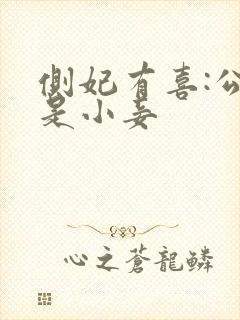 側妃有喜:公
是小妾
心之蒼龍鱗